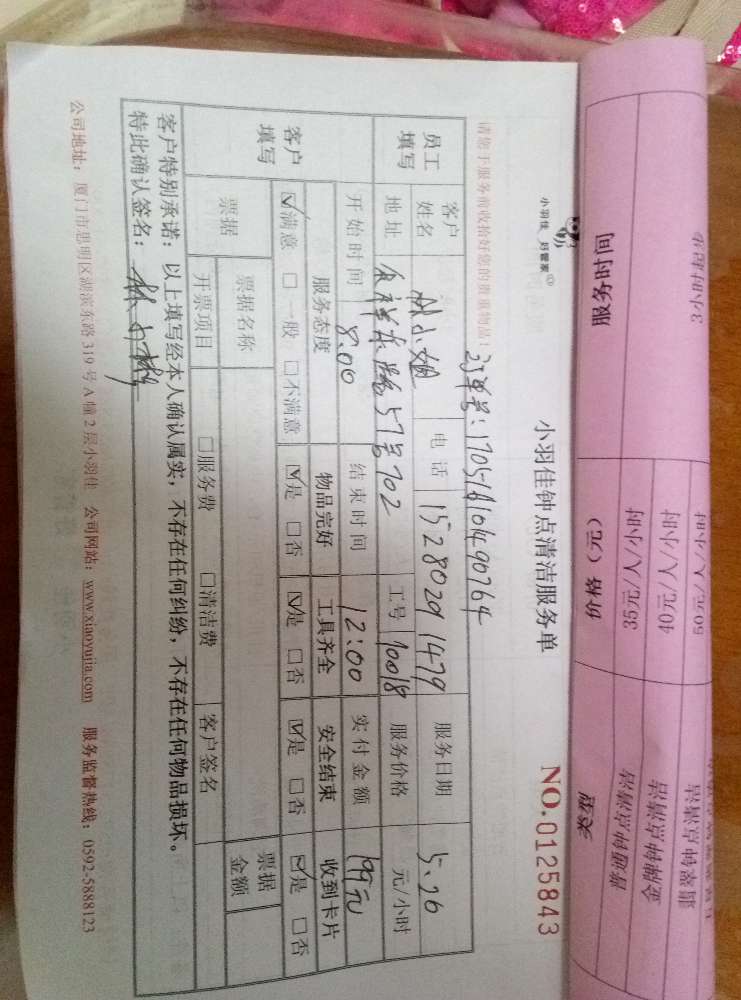 小羽佳 好管家
小羽佳钟点清洁服务单 NO.0125843
请您于服务前收拾好您的贵重物品!
订单号:
员工填写
客户姓名 林小姐 电话 15280291479 服务日期 5.26
地址 57号702 工号 10018 服务价格 元/小时
开始时间 8:00 结束时间 12:00 实付金额 元
客户填写
服务态度 物品完好 工具齐全 安全结束 收到卡片
☑满意 □一般 □不满意 ☑是 □否 ☑是 □否 ☑是 □否 ☑是 □否
票据 票据名称 票据金额
开票项目 □服务费 □清洁费 客户签名
客户特别承诺:以上填写经本人确认属实,不存在任何纠纷,不存在任何物品损坏。
特此确认签名:
公司地址:厦门市思明区湖滨东路319号A幢2层小羽佳 公司网站:www.xiaoyujia.com 服务监督热线:0592-5888123
服务时间 价格(元) 类型
35元/人/小时 普通钟点清洁
40元/人/小时 金牌钟点清洁
3小时 50元/人/小时